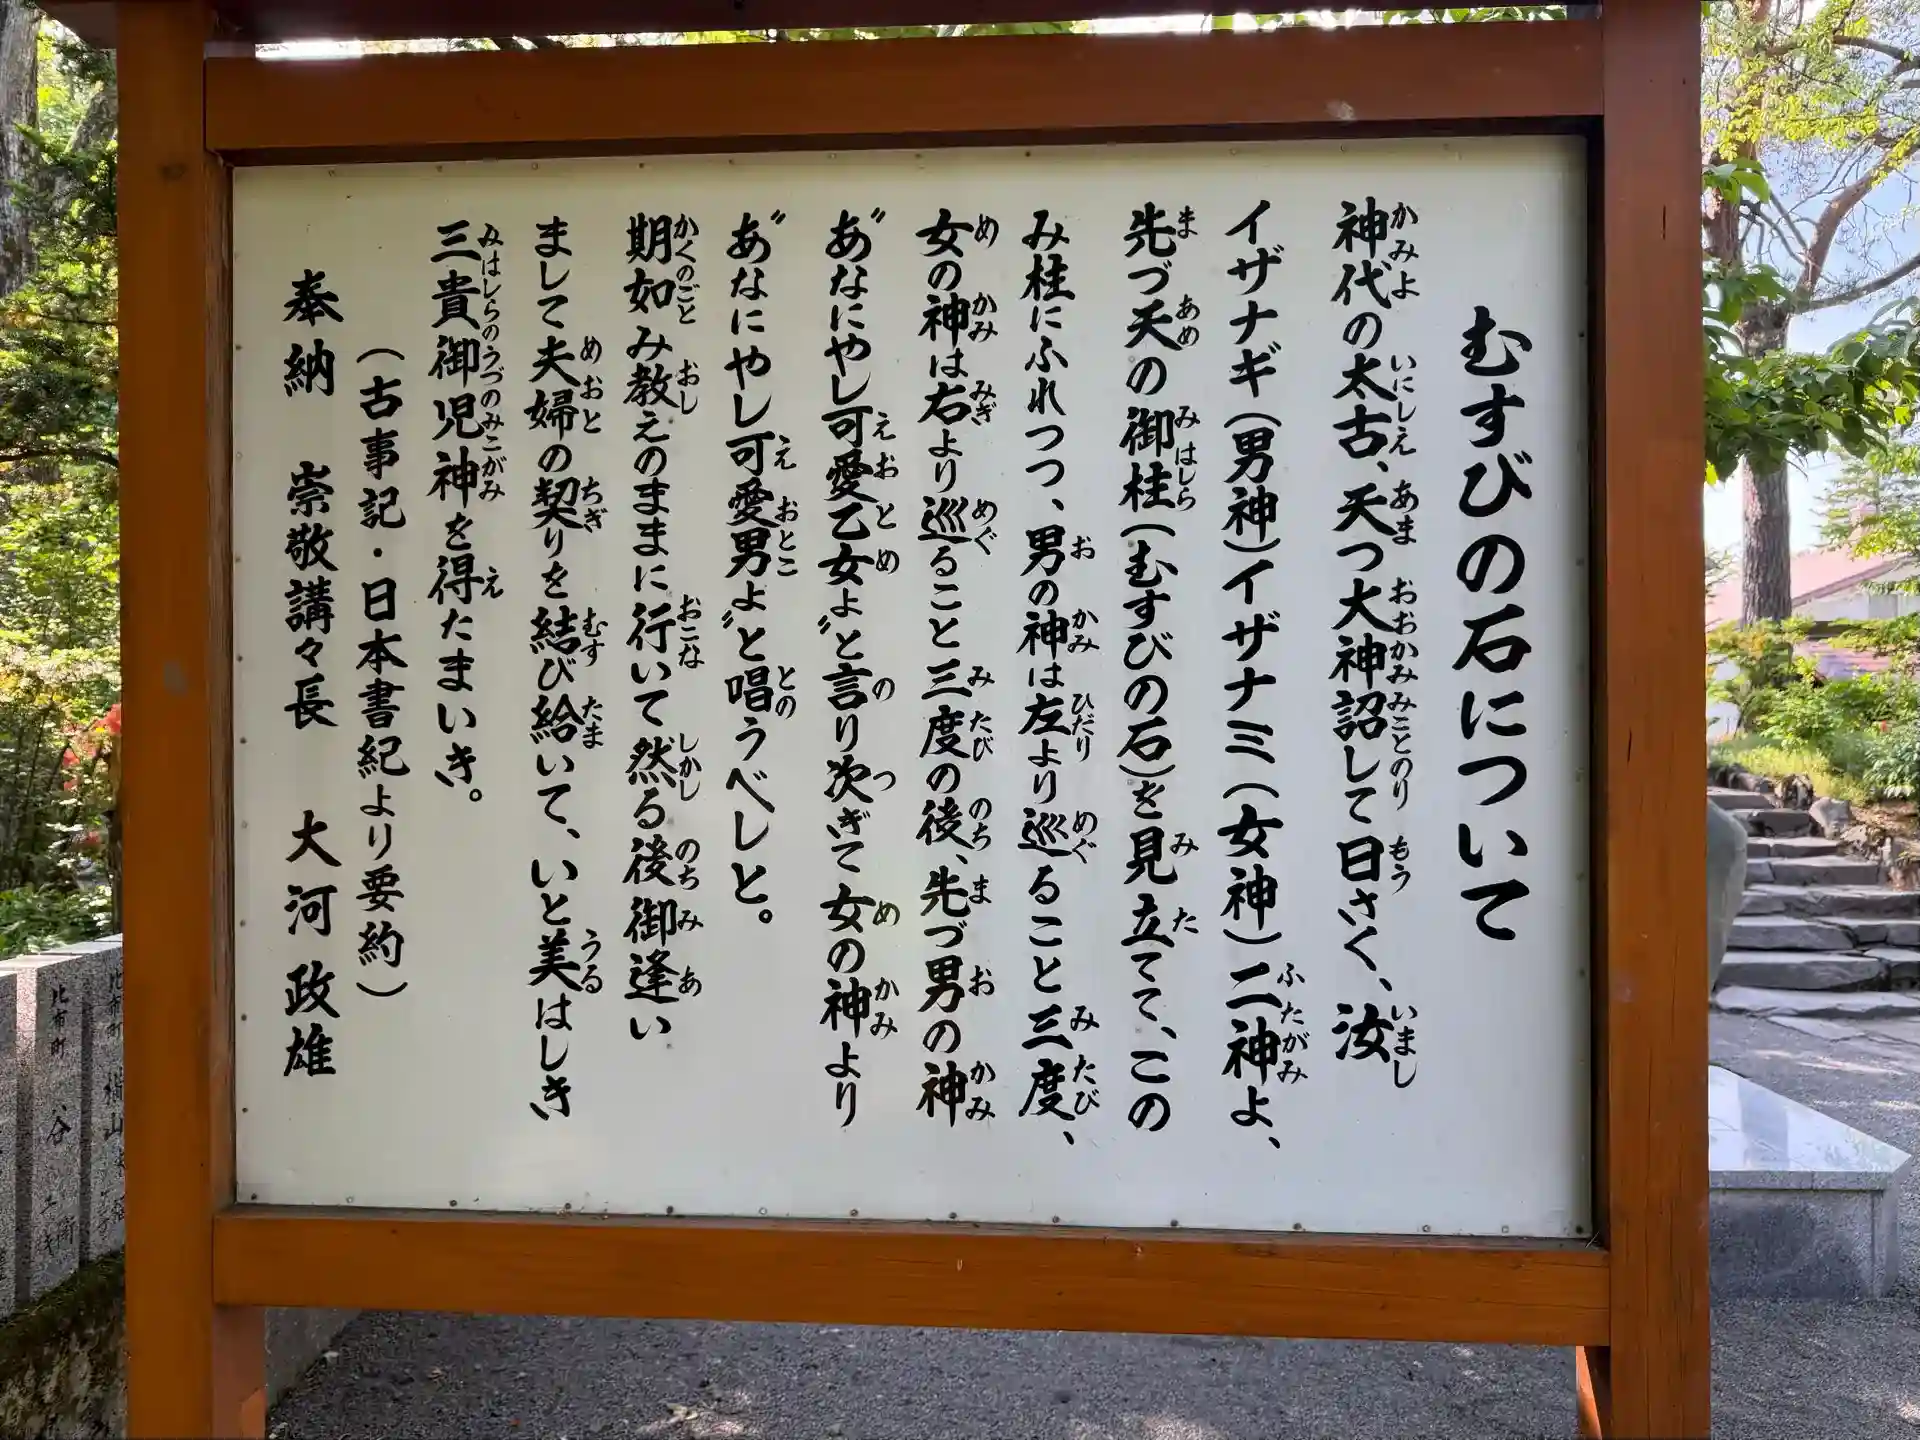 むすびの石について
神代の太古、天つ大神詔して曰さく、汝
イザナギ(男神)イザナミ(女神)二神よ、
先づ天の御柱(むすびの石)を見立てて、この
み柱にふれつつ、男の神は左より巡ること三度、
女の神は右より巡ること三度の後、先づ男の神
〝あなにやし可愛乙女よ〟と言り次ぎて女の神より
〝あなにやし可愛男よ〟と唱うべしと。
期如み教えのままに行いて然る後御逢い
まして夫婦の契りを結び給いて、いと美はしき
三貴御児神を得たまいき。
(古事記・日本書紀より要約)
奉納 崇敬講々長 大河政雄